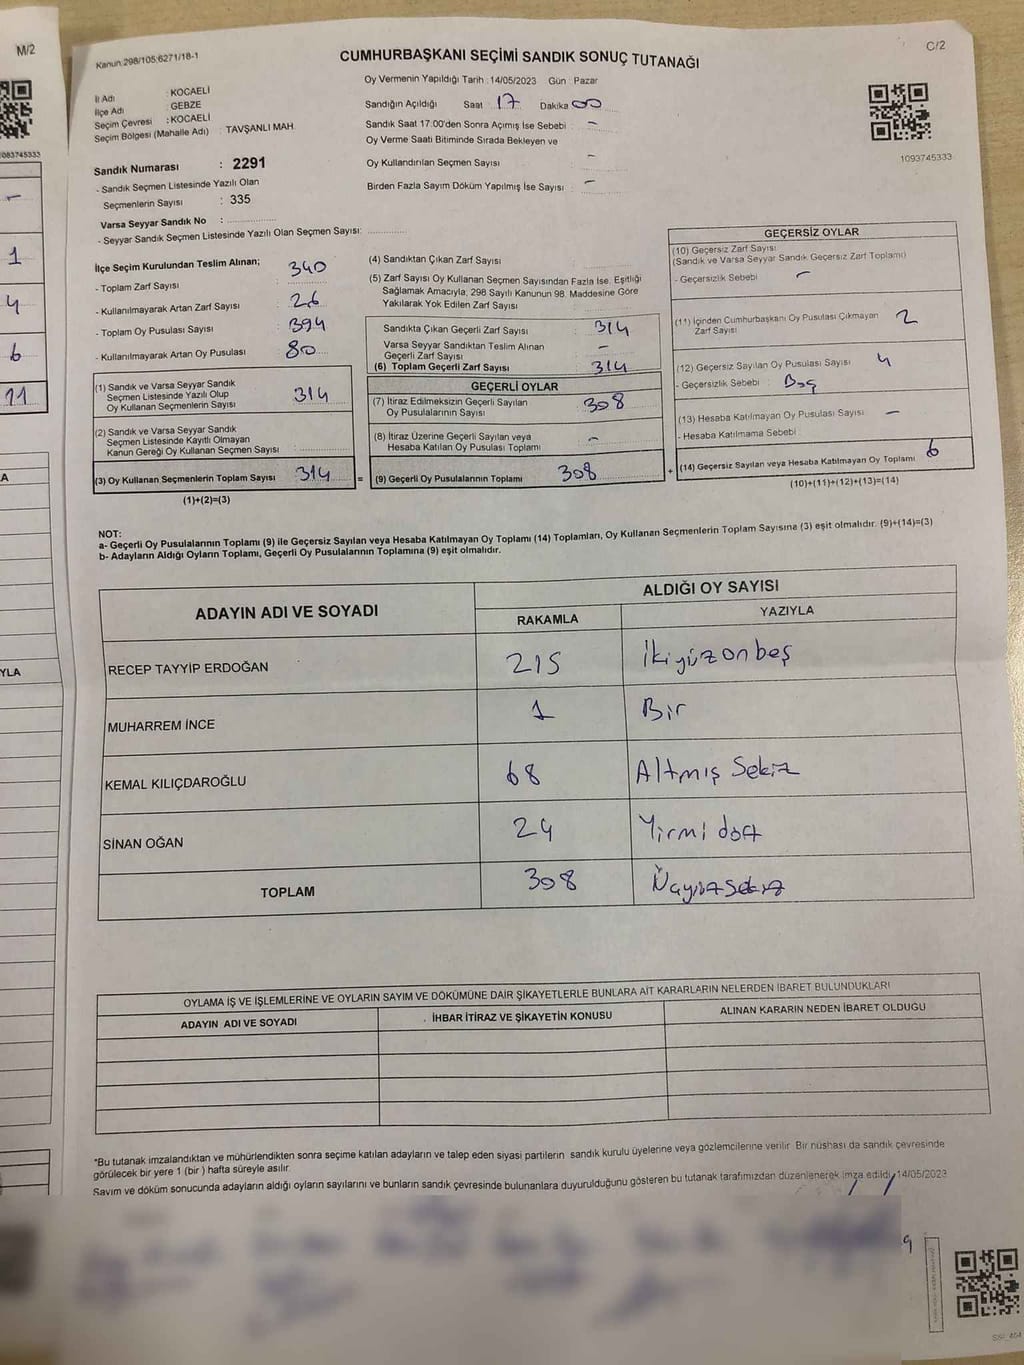 M/2
083745333
-
1
4
6
11
A
YLA
Kanun:298/105;6271/18-1
C/2
CUMHURBAŞKANI SEÇİMİ SANDIK SONUÇ TUTANAĞI
Oy Vermenin Yapıldığı Tarih : 14/05/2023 Gün : Pazar
İl Adı : KOCAELİ
İlçe Adı : GEBZE
Seçim Çevresi : KOCAELİ
Seçim Bölgesi (Mahalle Adı) : TAVŞANLI MAH.
Sandığın Açıldığı Saat 17 Dakika 00
Sandık Saat 17:00'den Sonra Açımış İse Sebebi : -
Oy Verme Saati Bitiminde Sırada Bekleyen ve
Oy Kullandırılan Seçmen Sayısı : -
Birden Fazla Sayım Döküm Yapılmış İse Sayısı : -
1093745333
Sandık Numarası : 2291
- Sandık Seçmen Listesinde Yazılı Olan
Seçmenlerin Sayısı : 335
Varsa Seyyar Sandık No :
- Seyyar Sandık Seçmen Listesinde Yazılı Olan Seçmen Sayısı:
İlçe Seçim Kurulundan Teslim Alınan;
- Toplam Zarf Sayısı : 340
- Kullanılmayarak Artan Zarf Sayısı : 26
- Toplam Oy Pusulası Sayısı : 394
- Kullanılmayarak Artan Oy Pusulası : 80
(1) Sandık ve Varsa Seyyar Sandık
Seçmen Listesinde Yazılı Olup
Oy Kullanan Seçmenlerin Sayısı 314
(2) Sandık ve Varsa Seyyar Sandık
Seçmen Listesinde Kayıtlı Olmayan
Kanun Gereği Oy Kullanan Seçmen Sayısı
(3) Oy Kullanan Seçmenlerin Toplam Sayısı 314
(1)+(2)=(3)
=
(4) Sandıktan Çıkan Zarf Sayısı :
(5) Zarf Sayısı Oy Kullanan Seçmen Sayısından Fazla İse, Eşitliği
Sağlamak Amacıyla, 298 Sayılı Kanunun 98. Maddesine Göre
Yakılarak Yok Edilen Zarf Sayısı :
Sandıkta Çıkan Geçerli Zarf Sayısı : 314
Varsa Seyyar Sandıktan Teslim Alınan
Geçerli Zarf Sayısı : -
(6) Toplam Geçerli Zarf Sayısı : 314
GEÇERLİ OYLAR
(7) İtiraz Edilmeksizin Geçerli Sayılan
Oy Pusulalarının Sayısı : 308
(8) İtiraz Üzerine Geçerli Sayılan veya
Hesaba Katılan Oy Pusulası Toplamı : -
(9) Geçerli Oy Pusulalarının Toplamı 308
+
GEÇERSİZ OYLAR
(10) Geçersiz Zarf Sayısı
(Sandık ve Varsa Seyyar Sandık Geçersiz Zarf Toplamı)
- Geçersizlik Sebebi : -
(11) İçinden Cumhurbaşkanı Oy Pusulası Çıkmayan
Zarf Sayısı : 2
(12) Geçersiz Sayılan Oy Pusulası Sayısı : 4
- Geçersizlik Sebebi : Boş
(13) Hesaba Katılmayan Oy Pusulası Sayısı : -
- Hesaba Katılmama Sebebi :
(14) Geçersiz Sayılan veya Hesaba Katılmayan Oy Toplamı 6
(10)+(11)+(12)+(13)=(14)
NOT:
a- Geçerli Oy Pusulalarının Toplamı (9) ile Geçersiz Sayılan veya Hesaba Katılmayan Oy Toplamı (14) Toplamları, Oy Kullanan Seçmenlerin Toplam Sayısına (3) eşit olmalıdır. (9)+(14)=(3)
b- Adayların Aldığı Oyların Toplamı, Geçerli Oy Pusulalarının Toplamına (9) eşit olmalıdır.
ADAYIN ADI VE SOYADI
ALDIĞI OY SAYISI
RAKAMLA YAZIYLA
RECEP TAYYİP ERDOĞAN 215 İkiyüzonbeş
MUHARREM İNCE 1 Bir
KEMAL KILIÇDAROĞLU 68 Altmış Sekiz
SİNAN OĞAN 24 Yirmi dört
TOPLAM 308 Üçyüzsekiz
OYLAMA İŞ VE İŞLEMLERİNE VE OYLARIN SAYIM VE DÖKÜMÜNE DAİR ŞİKAYETLERLE BUNLARA AİT KARARLARIN NELERDEN İBARET BULUNDUKLARI
ADAYIN ADI VE SOYADI İHBAR İTİRAZ VE ŞİKAYETİN KONUSU ALINAN KARARIN NEDEN İBARET OLDUĞU
*Bu tutanak imzalandıktan ve mühürlendikten sonra seçime katılan adayların ve talep eden siyasi partilerin sandık kurulu üyelerine veya gözlemcilerine verilir. Bir nüshası da sandık çevresinde
görülecek bir yere 1 (bir ) hafta süreyle asılır.
Sayım ve döküm sonucunda adayların aldığı oyların sayılarını ve bunların sandık çevresinde bulunanlara duyurulduğunu gösteren bu tutanak tarafımızdan düzenlenerek imza edildi. 14/05/2023